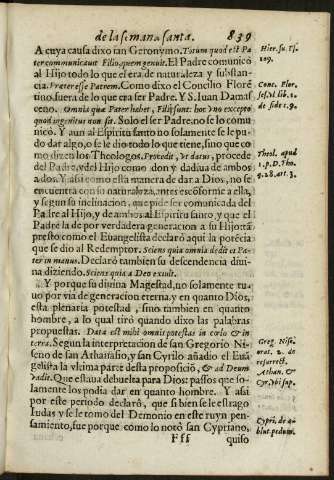 de la semana santa. 839
A cuya causa dixo san Geronymo. Totum quod est Pa
ter communicauit Filio, quem genuit. El Padre comunicó
al Hijo todo lo que el era de naturaleza y substan-
cia. Frater esse Patrem. Como dixo el Concilio Flore
tino, fuera de lo que era ser Padre. Y S. Iuan Damas
ceno. Omnia quæ Pater habet, Filij sunt: hoc vno excepto
quod ingenitus non sit. Solo el ser Padre, no se lo comu
nicó. Y aun al Espiritu santo no solamente se le pu-
do dar algo, o se le dio todo lo que tiene, sino que co
mo dizen los Theologos. Procedit, vt datus, procede
del Padre, y del Hijo como don y dadiua de ambos
ados. Y assi como esta manera de dar a Dios, no se
encuentra con su naturaleza, antes es cõforme a ella,
y segun su inclinacion, que pide ser comunicada del
Padre al Hijo, y de ambos al Espiritu santo, y que el
Padre la de por verdadera generacion a su Hijo tã
presto como el Euangelista declaró aqui la potẽcia
que se dio al Redemptor. Sciens quia omnia dedit ei Pa-
ter in manus. Declaró tambien su descendencia diui
na diziendo. Sciens quia a Deo exiuit.
Y porque su diuina Magestad, no solamente tu-
uo por via de generacion eterna, y en quanto Dios,
esta plenaria potestad, sino tambien en quanto
hombre, a lo qual tiró quando dixo las palabras
propuestas. Data est mihi omnis potestas in cœlo & in
terra. Segun la interpretacion de san Gregorio Ni-
seno de san Athanasio, y san Cyrilo añadio el Euã
gelista la vltima parte desta proposició, & ad Deum
vadit. Que estaua debuelta para Dios: passos que so-
lamente los podia dar en quanto hombre. Y assi
por este periodo declaró, que si bien se le estrago
Iudas y se le tomo del Demonio en este ruyn pen-
samiento, fue porque como lo notò san Cypriano,
Fff quiso
Hier. su. Ps.
109.
Conc. Flor.
de fide c. 9.
Theol. apud
1. p. D. Tho.
q. 28. art. 3.
Greg. Nise.
orat. 2. de
resurrect.
Athan. &
Cyr. vbi sup.
Cypri. de a-
blut. pedum.